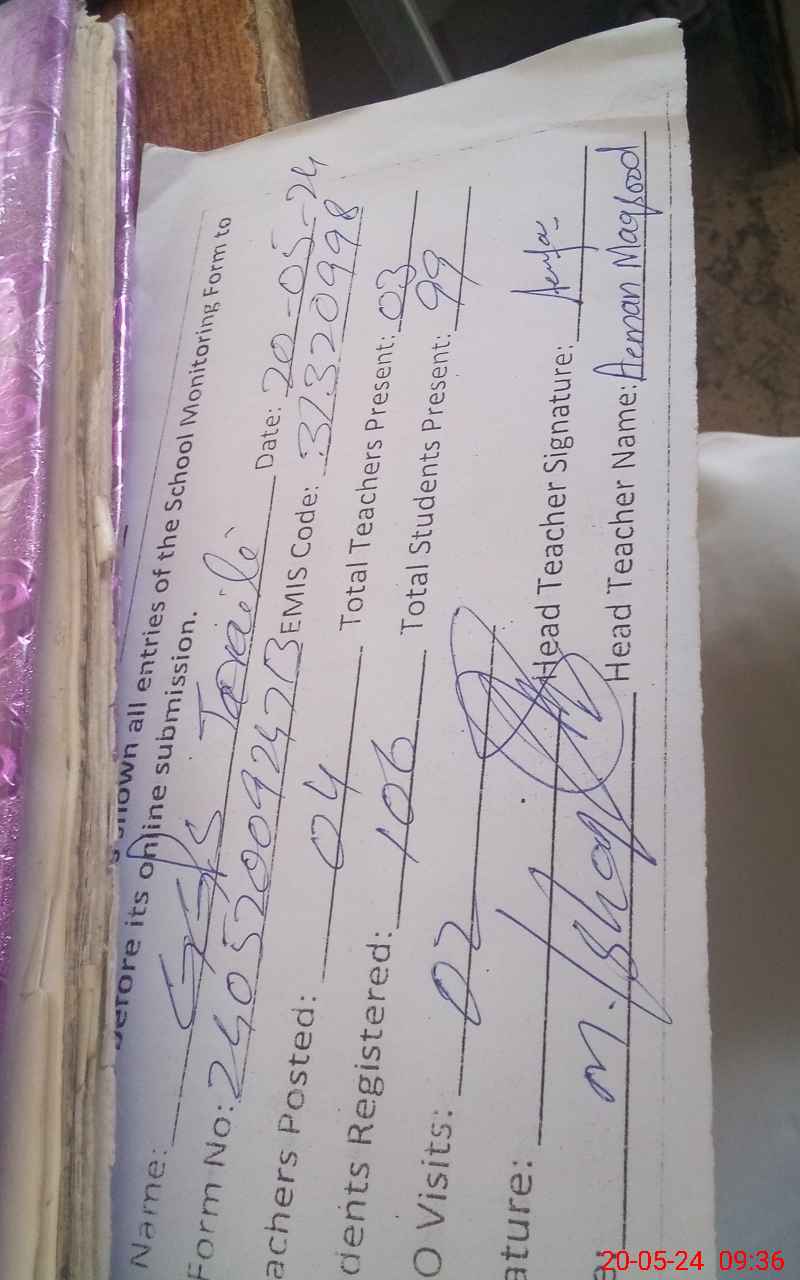 before its online submission. shown all entries of the School Monitoring Form to
Name: GGPS Date: 20-05-24
Form No: EMIS Code: 37320998
achers Posted: 04 Total Teachers Present: 03
dents Registered: 106 Total Students Present: 99
O Visits: 02
ature: Head Teacher Signature:
e: M. Ishaq Head Teacher Name: Aeman Maqsood
20-05-24 09:36